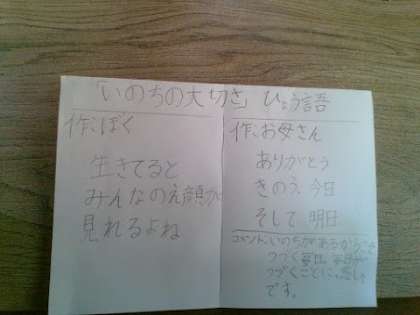 「いのちの大切さ」ひょう語
作:ぼく
生きてると
みんなのえ顔が
見れるよね
作:お母さん
ありがとう
きのう 今日
そして 明日
いのちがあるからこそ
つづく
つづくことに、感し
です。